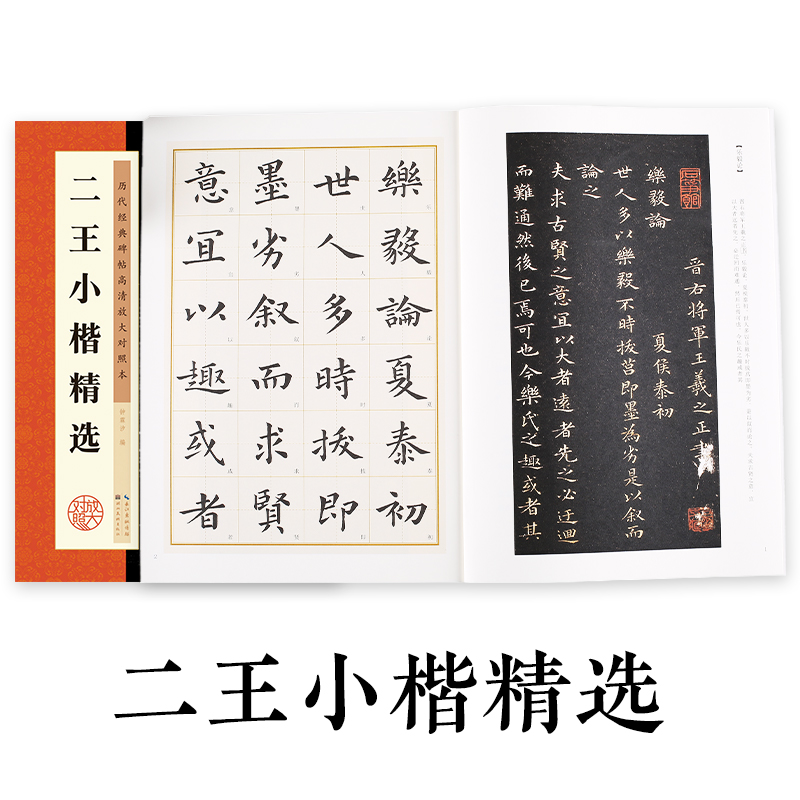 历代经典碑帖高清放大对照本
二王小楷精选
放大对照
樂毅論夏泰初
世人多時拔即
墨劣叙而求賢
意宜以趣或者
晋右將軍王羲之正書
樂毅論 夏侯泰初
世人多以樂毅不時拔莒即墨為劣是以叙而
論之
夫求古賢之意宜以大者遠者先之必迂迴
而難通然後已焉可也今樂氏之趣或者其
二王小楷精选